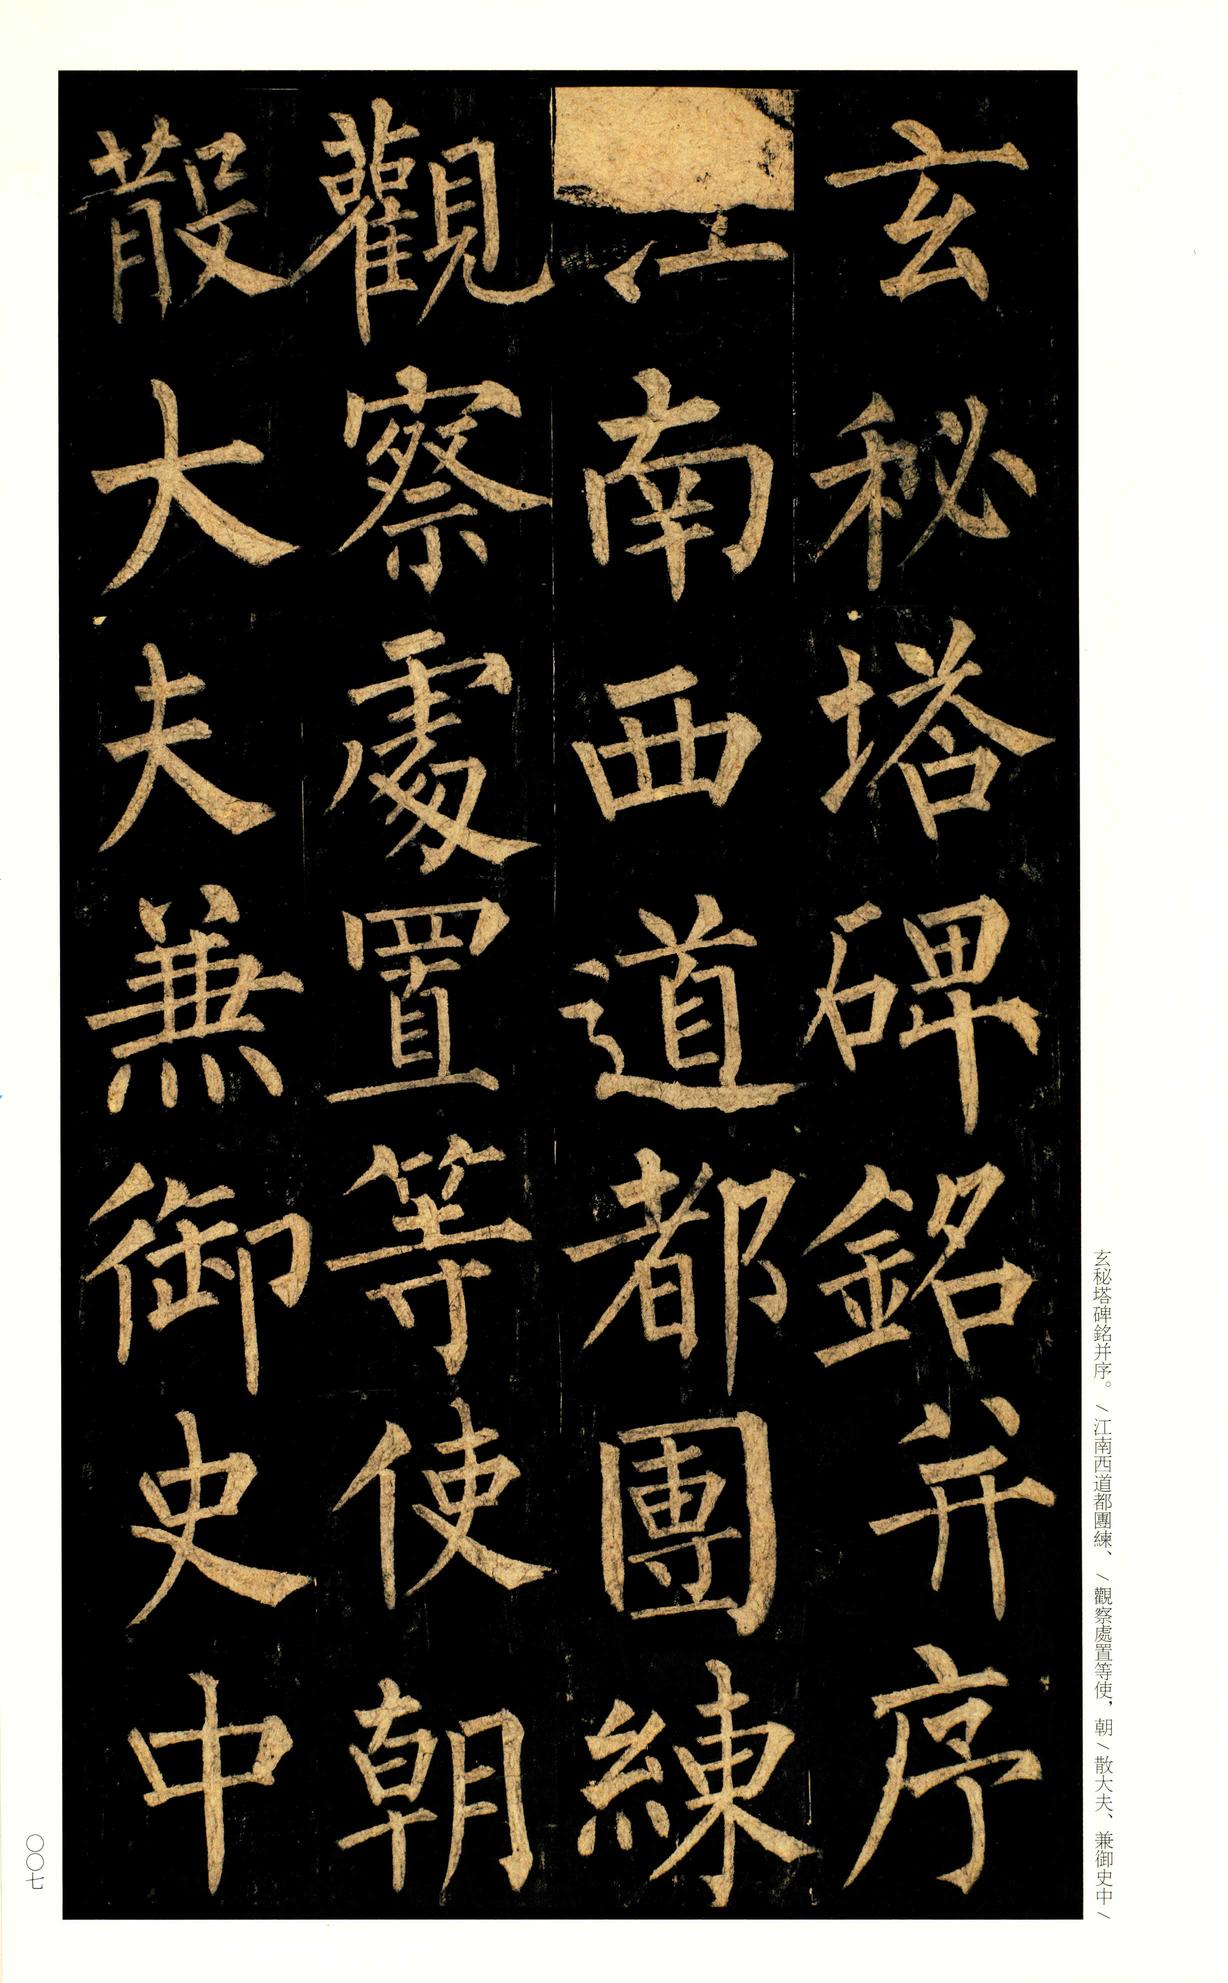 玄秘塔碑銘并序
江南西道都團練
觀察處置等使朝
散大夫兼御史中
玄秘塔碑銘并序。/江南西道都團練、/觀察處置等使，朝/散大夫、兼御史中/
〇〇七